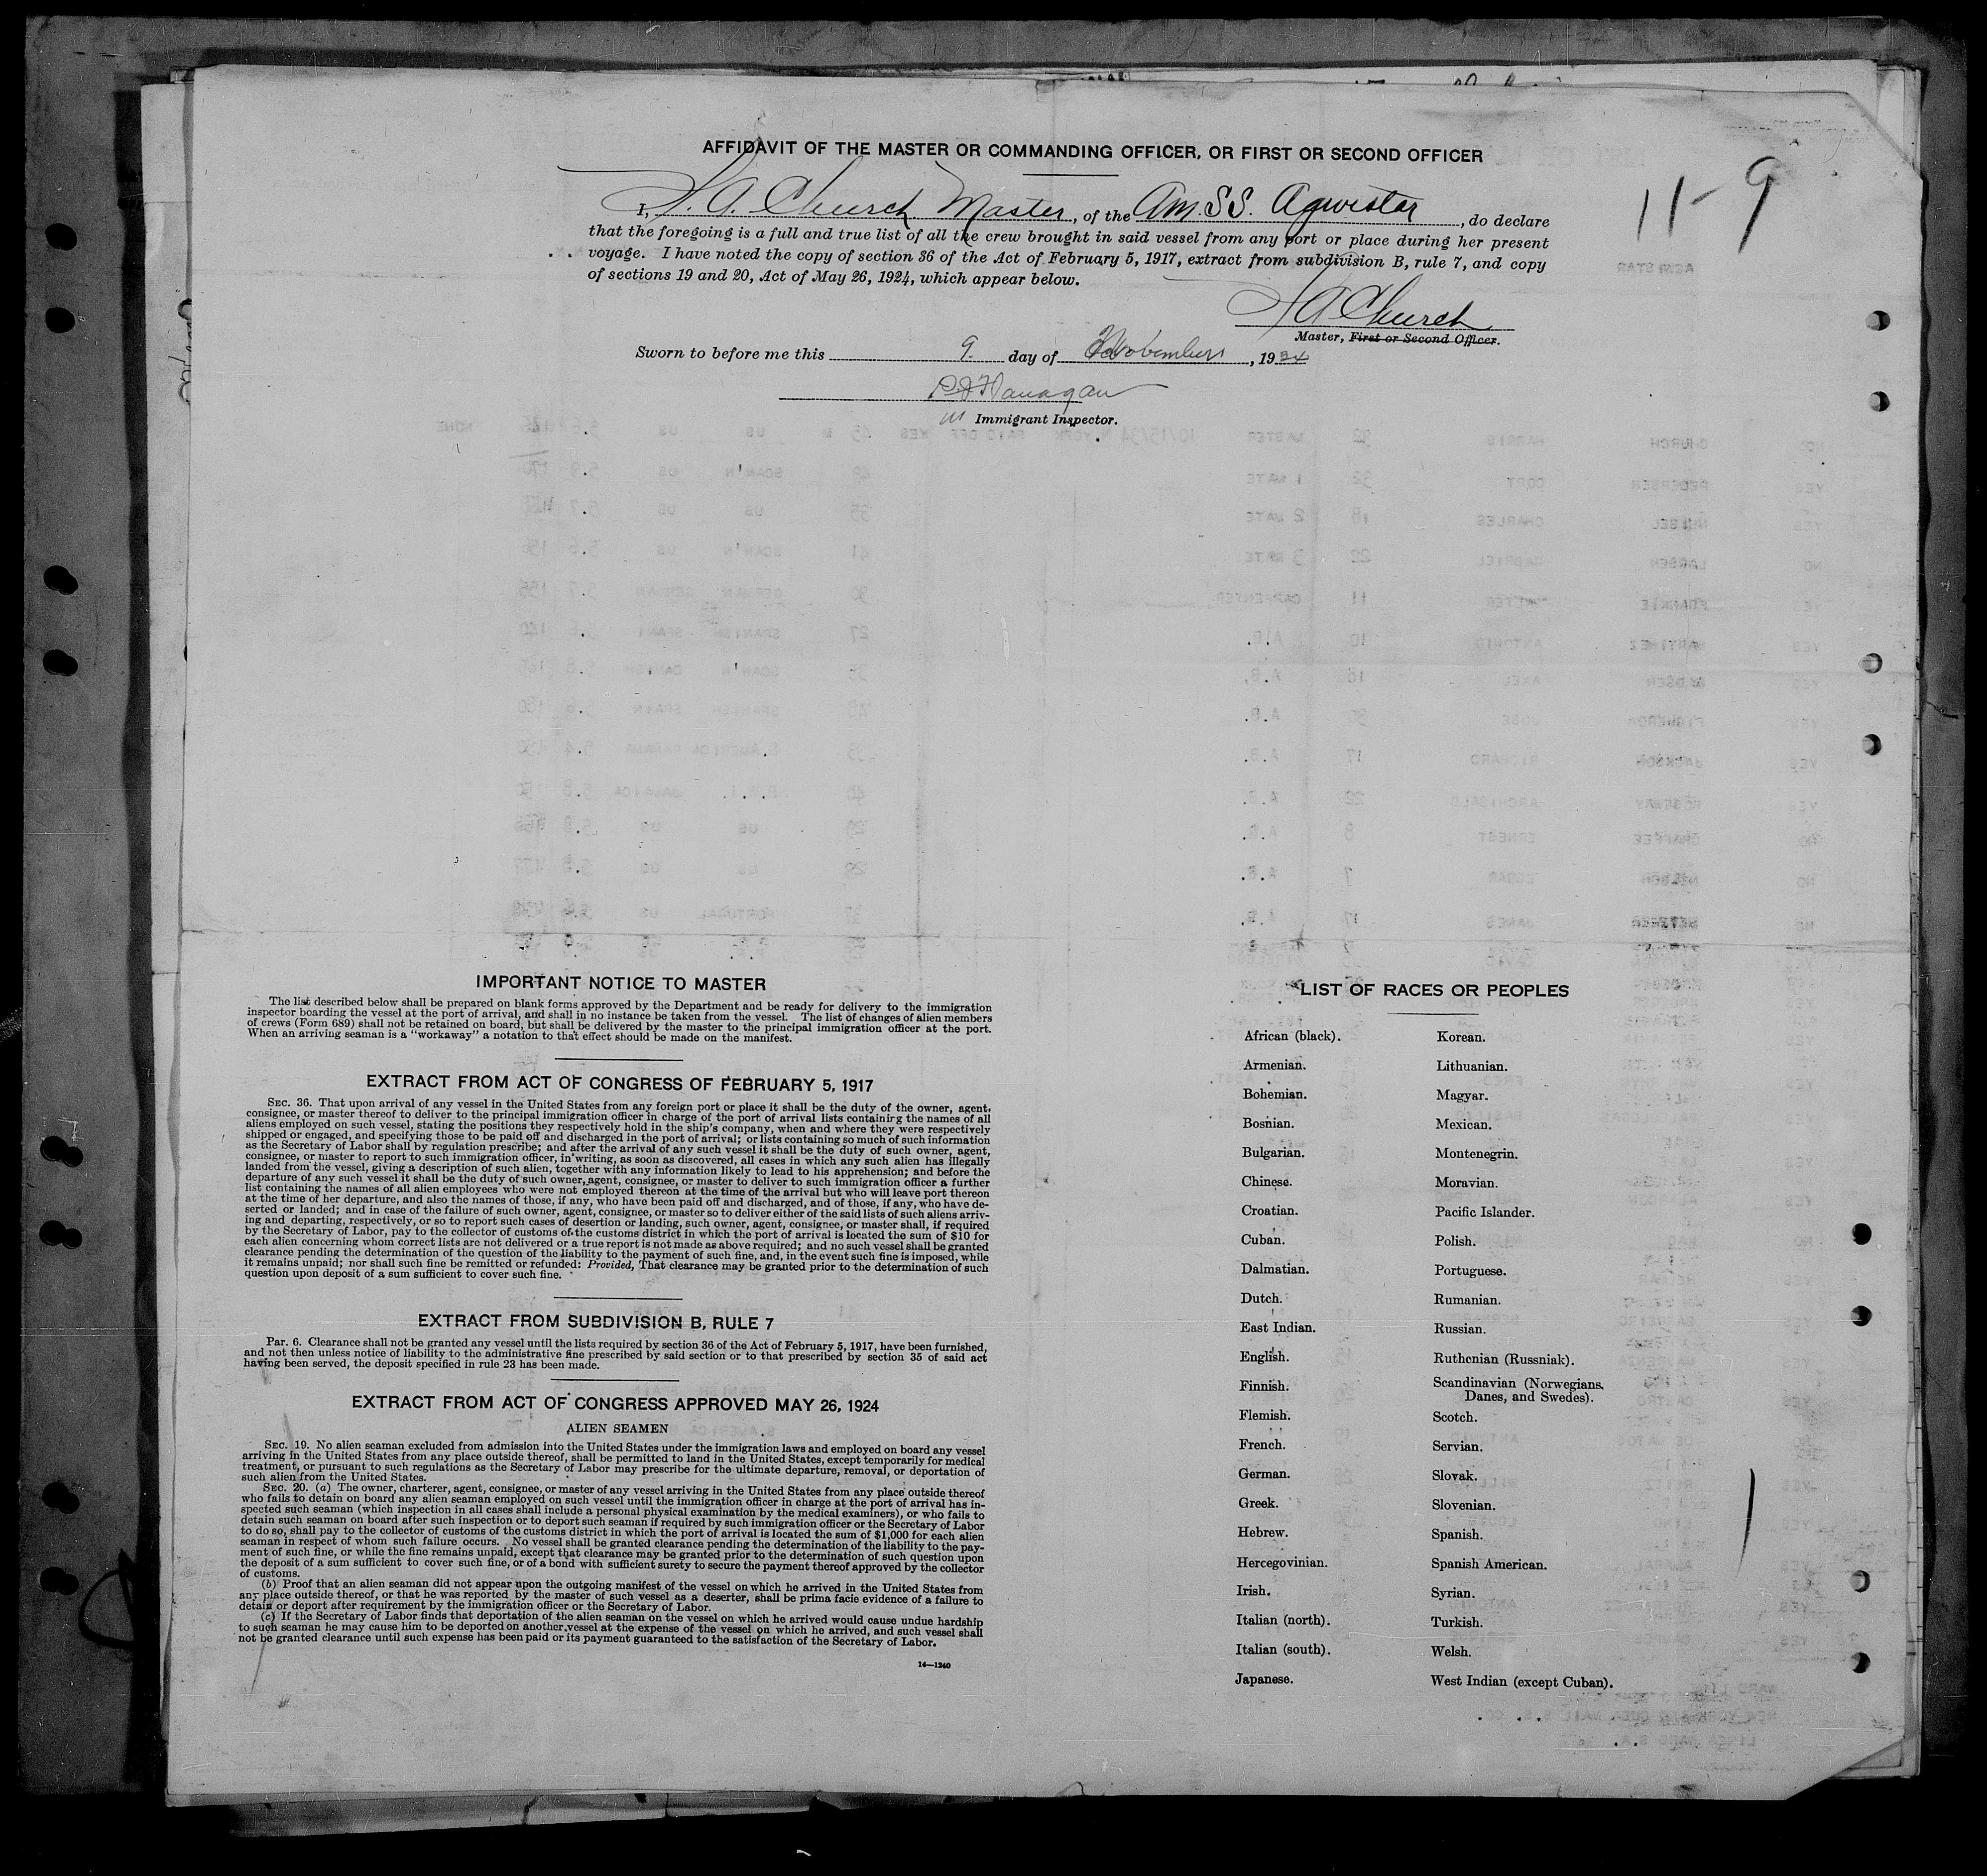 AFFIDAVIT OF THE MASTER OR COMMANDING OFFICER, OR FIRST OR SECOND OFFICER
11-9
I, H. A. Church Master, of the Am. SS. Agwistar, do declare
that the foregoing is a full and true list of all the crew brought in said vessel from any port or place during her present
voyage. I have noted the copy of section 36 of the Act of February 5, 1917, extract from subdivision B, rule 7, and copy
of sections 19 and 20, Act of May 26, 1924, which appear below.
H A Church
Master, First or Second Officer.
Sworn to before me this 9 day of November, 1934
Flanagan
Immigrant Inspector.
IMPORTANT NOTICE TO MASTER
The list described below shall be prepared on blank forms approved by the Department and be ready for delivery to the immigration
inspector boarding the vessel at the port of arrival, and shall in no instance be taken from the vessel. The list of changes of alien members
of crews (Form 689) shall not be retained on board, but shall be delivered by the master to the principal immigration officer at the port.
When an arriving seaman is a "workaway" a notation to that effect should be made on the manifest.
EXTRACT FROM ACT OF CONGRESS OF FEBRUARY 5, 1917
SEC. 36. That upon arrival of any vessel in the United States from any foreign port or place it shall be the duty of the owner, agent,
consignee, or master thereof to deliver to the principal immigration officer in charge of the port of arrival lists containing the names of all
aliens employed on such vessel, stating the positions they respectively hold in the ship's company, when and where they were respectively
shipped or engaged, and specifying those to be paid off and discharged in the port of arrival; or lists containing so much of such information
as the Secretary of Labor shall by regulation prescribe; and after the arrival of any such vessel it shall be the duty of such owner, agent,
consignee, or master to report to such immigration officer, in writing, as soon as discovered, all cases in which any such alien has illegally
landed from the vessel, giving a description of such alien, together with any information likely to lead to his apprehension; and before the
departure of any such vessel it shall be the duty of such owner, agent, consignee, or master to deliver to such immigration officer a further
list containing the names of all alien employees who were not employed thereon at the time of the arrival but who will leave port thereon
at the time of her departure, and also the names of those, if any, who have been paid off and discharged, and of those, if any, who have de-
serted or landed; and in case of the failure of such owner, agent, consignee, or master so to deliver either of the said lists of such aliens arriv-
ing and departing, respectively, or so to report such cases of desertion or landing, such owner, agent, consignee, or master shall, if required
by the Secretary of Labor, pay to the collector of customs of the customs district in which the port of arrival is located the sum of $10 for
each alien concerning whom correct lists are not delivered or a true report is not made as above required; and no such vessel shall be granted
clearance pending the determination of the question of the liability to the payment of such fine, and, in the event such fine is imposed, while
it remains unpaid; nor shall such fine be remitted or refunded: Provided, That clearance may be granted prior to the determination of such
question upon deposit of a sum sufficient to cover such fine.
EXTRACT FROM SUBDIVISION B, RULE 7
Par. 6. Clearance shall not be granted any vessel until the lists required by section 36 of the Act of February 5, 1917, have been furnished,
and not then unless notice of liability to the administrative fine prescribed by said section or to that prescribed by section 35 of said act
having been served, the deposit specified in rule 23 has been made.
EXTRACT FROM ACT OF CONGRESS APPROVED MAY 26, 1924
ALIEN SEAMEN
SEC. 19. No alien seaman excluded from admission into the United States under the immigration laws and employed on board any vessel
arriving in the United States from any place outside thereof, shall be permitted to land in the United States, except temporarily for medical
treatment, or pursuant to such regulations as the Secretary of Labor may prescribe for the ultimate departure, removal, or deportation of
such alien from the United States.
SEC. 20. (a) The owner, charterer, agent, consignee, or master of any vessel arriving in the United States from any place outside thereof
who fails to detain on board any alien seaman employed on such vessel until the immigration officer in charge at the port of arrival has in-
spected such seaman (which inspection in all cases shall include a personal physical examination by the medical examiners), or who fails to
detain such seaman on board after such inspection or to deport such seaman if required by such immigration officer or the Secretary of Labor
to do so, shall pay to the collector of customs of the customs district in which the port of arrival is located the sum of $1,000 for each alien
seaman in respect of whom such failure occurs. No vessel shall be granted clearance pending the determination of the liability to the pay-
ment of such fine, or while the fine remains unpaid, except that clearance may be granted prior to the determination of such question upon
the deposit of a sum sufficient to cover such fine, or of a bond with sufficient surety to secure the payment thereof approved by the collector
of customs.
(b) Proof that an alien seaman did not appear upon the outgoing manifest of the vessel on which he arrived in the United States from
any place outside thereof, or that he was reported by the master of such vessel as a deserter, shall be prima facie evidence of a failure to
detain or deport after requirement by the immigration officer or the Secretary of Labor.
(c) If the Secretary of Labor finds that deportation of the alien seaman on the vessel on which he arrived would cause undue hardship
to such seaman he may cause him to be deported on another vessel at the expense of the vessel on which he arrived, and such vessel shall
not be granted clearance until such expense has been paid or its payment guaranteed to the satisfaction of the Secretary of Labor.
14—1240
LIST OF RACES OR PEOPLES
African (black).
Armenian.
Bohemian.
Bosnian.
Bulgarian.
Chinese.
Croatian.
Cuban.
Dalmatian.
Dutch.
East Indian.
English.
Finnish.
Flemish.
French.
German.
Greek.
Hebrew.
Hercegovinian.
Irish.
Italian (north).
Italian (south).
Japanese.
Korean.
Lithuanian.
Magyar.
Mexican.
Montenegrin.
Moravian.
Pacific Islander.
Polish.
Portuguese.
Rumanian.
Russian.
Ruthenian (Russniak).
Scandinavian (Norwegians,
Danes, and Swedes).
Scotch.
Servian.
Slovak.
Slovenian.
Spanish.
Spanish American.
Syrian.
Turkish.
Welsh.
West Indian (except Cuban).